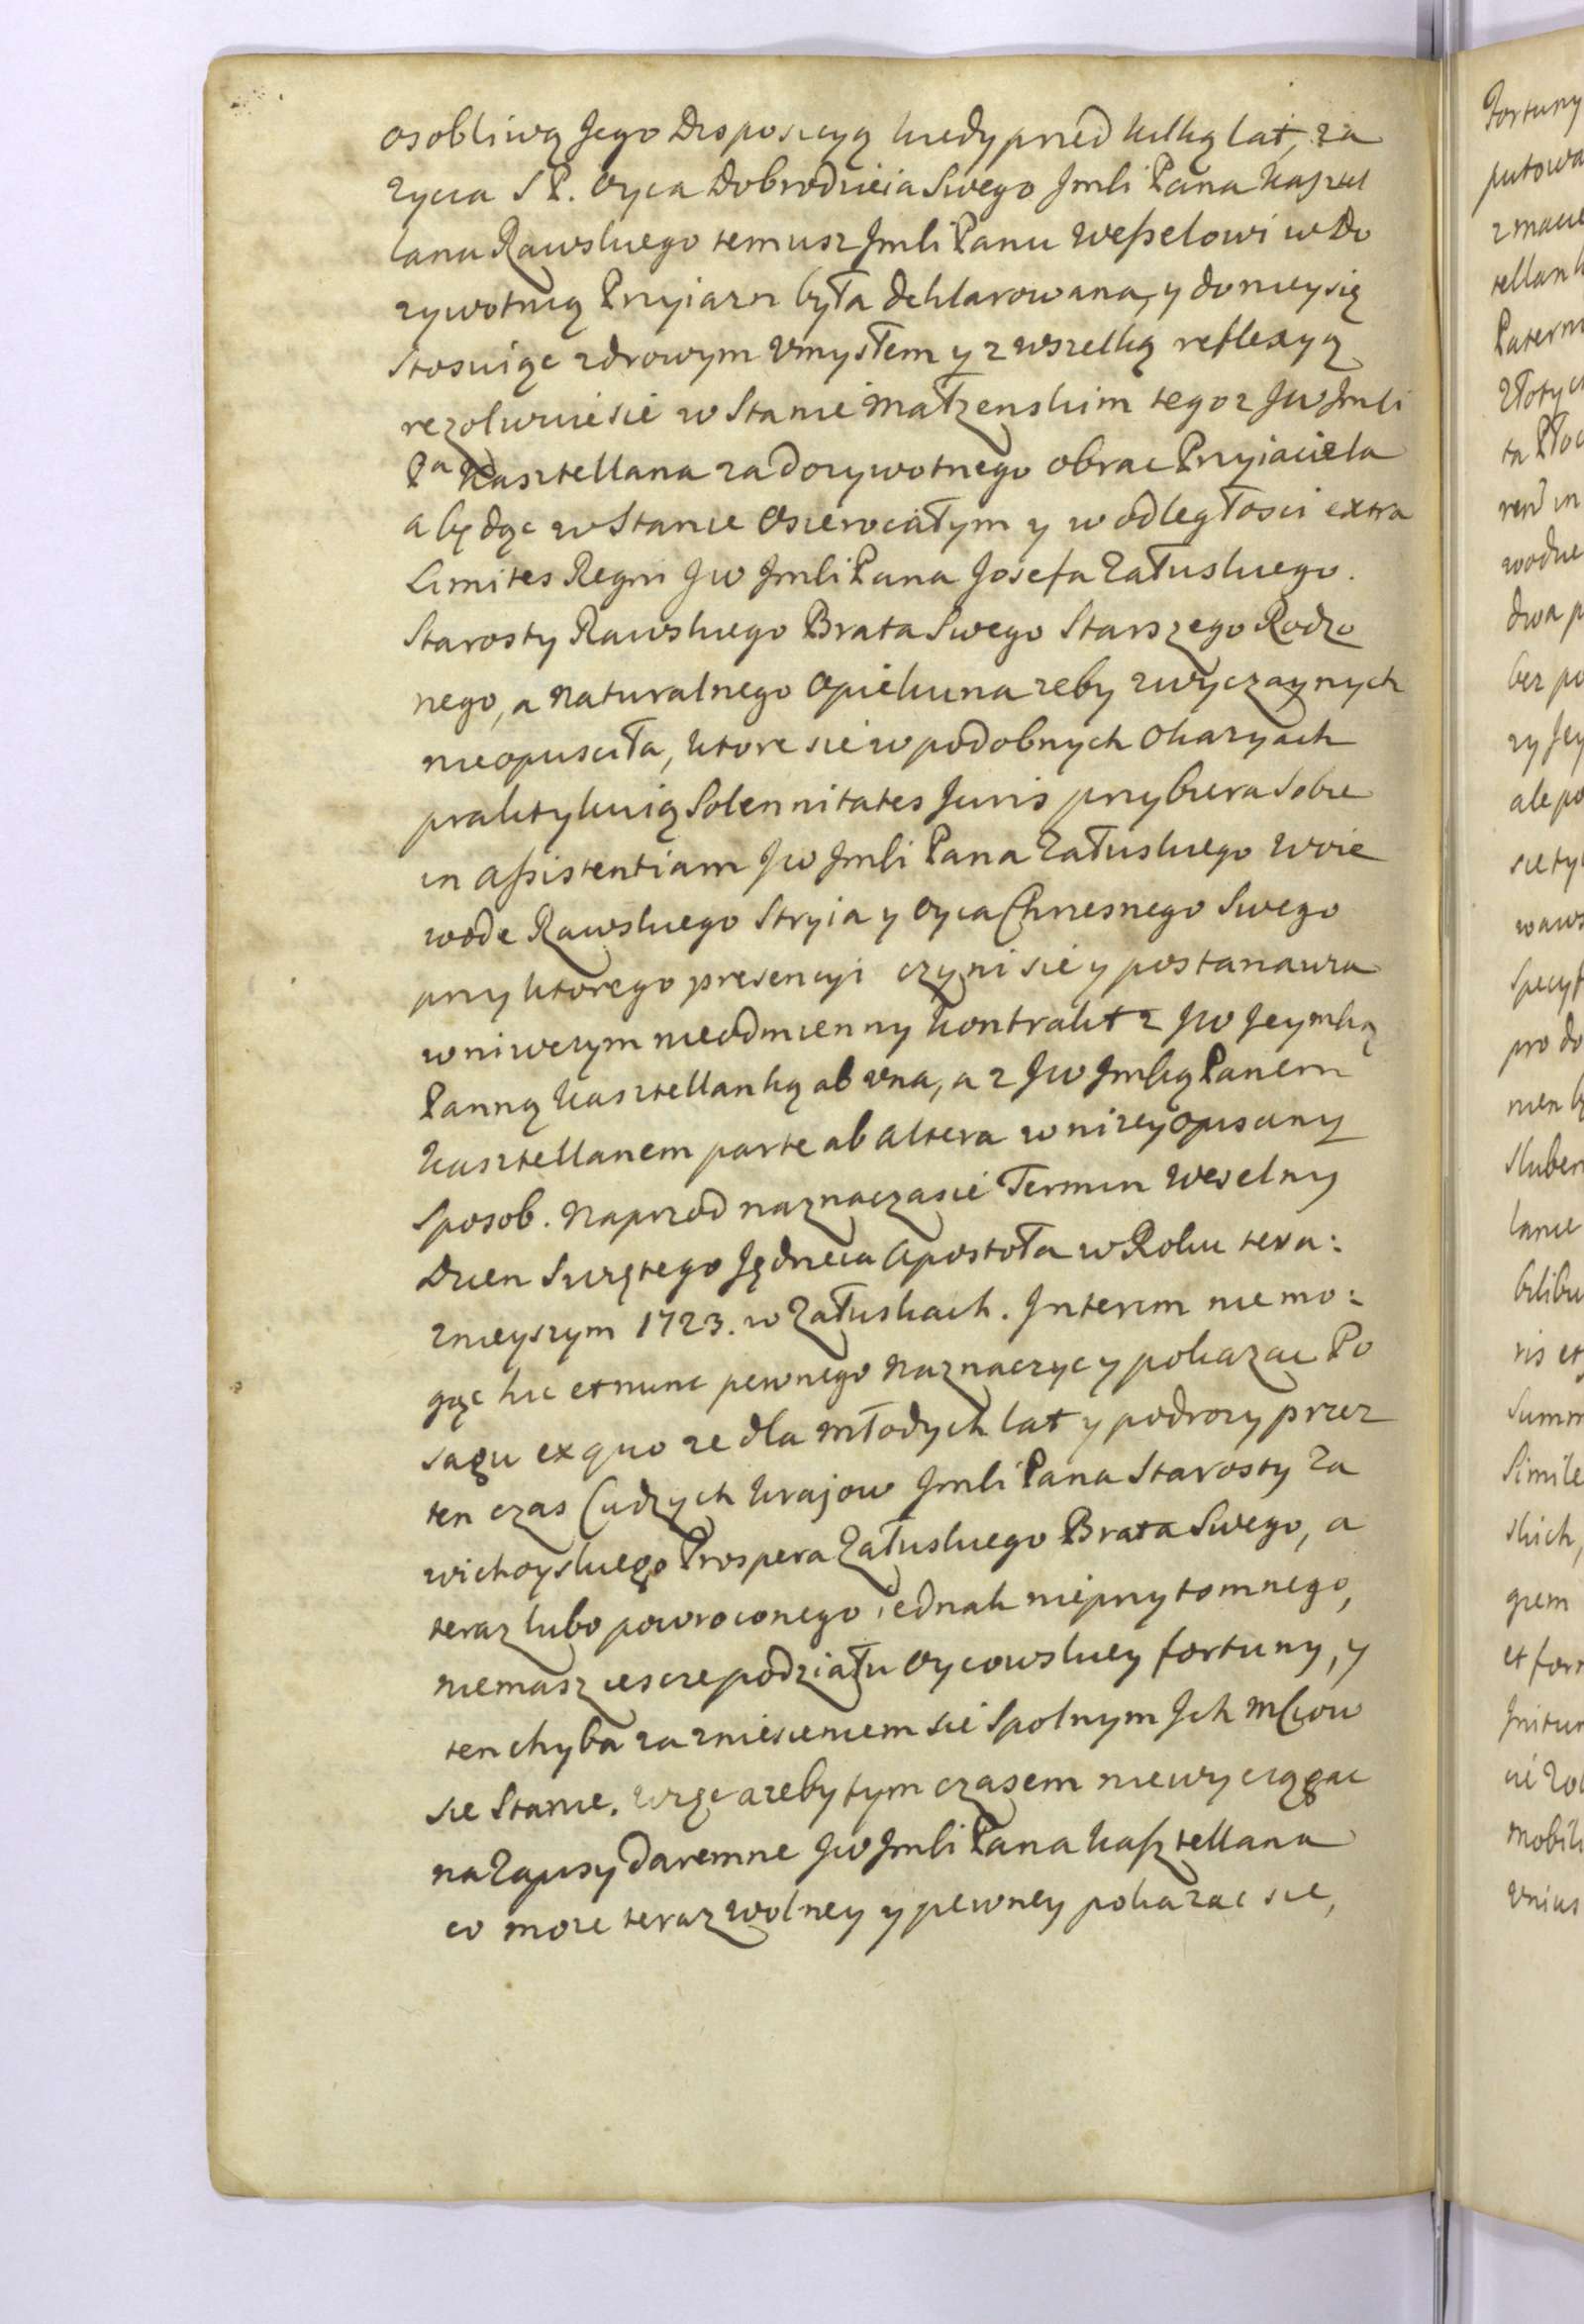 osobliwą Jego Disposicyą kiedy przed kilką lat, za
zycia S P. Oyca Dobrodzieia Swego Jmści Pana Kasztel
lana Rawskiego temusz Jmści Panu Wesselowi w Do
zywotnią Przyiazn była deklarowana, y do niey się
stosuiąc zdrowym Umysłem y z wszelką reflexyą
rezolwuie sie w Stanie Małzenskim tegoz Jw Jmści
Pa Kasztellana za dozywotnego obrac Przyiaciela
a będąc w Stanie Osierociałym y w odległosci extra
Limites Regni Jw Jmści Pana Josefa Załuskiego.
Starosty Rawskiego Brata Swego Starszego Rodzo
nego, a naturalnego Opiekuna zeby zwyczaynych
nieopusciła, ktore sie w podobnych Okazyach
praktykuią Solennitates Juris przybiera Sobie
in assistentiam Jw Jmści Pana Załuskiego Woie
wode Rawskiego Stryia y Oyca Chrzesnego Swego
przy ktorego presencyi czyni sie y postanawia
w niwczym nieodmienny kontrakt z Jw Jeymścią
Panną Kasztellanką ab una, a z Jw Jmścią Panem
Kasztellanem parte ab altera w nizey opisany
Sposob. Naprzod naznacza sie Termin Weselny
Dzien Swiętego Jędrzeia Apostoła w Roku tera:
znieyszym 1723. w Załuskach. Interim nie mo:
gąc hic et nunc pewnego naznaczyc y pokazac Po
sagu ex quo ze dla młodych lat y podrozy przez
ten czas Cudzych krajow Jmści Pana Starosty Za
wichoyskiego Prospera Załuskiego Brata Swego, a
teraz lubo powroconego iednak nieprzytomnego,
niemasz ieszcze podziału Oycowskiey fortuny, y
ten chyba za zniesieniem sie Spolnym Ich Mściow
sie Stanie. Więc azeby tym czasem niewyciągac
na Zapisy daremne Jw Jmści Pana Kasztellana
co moze teraz wolney y pewney pokazac sie,